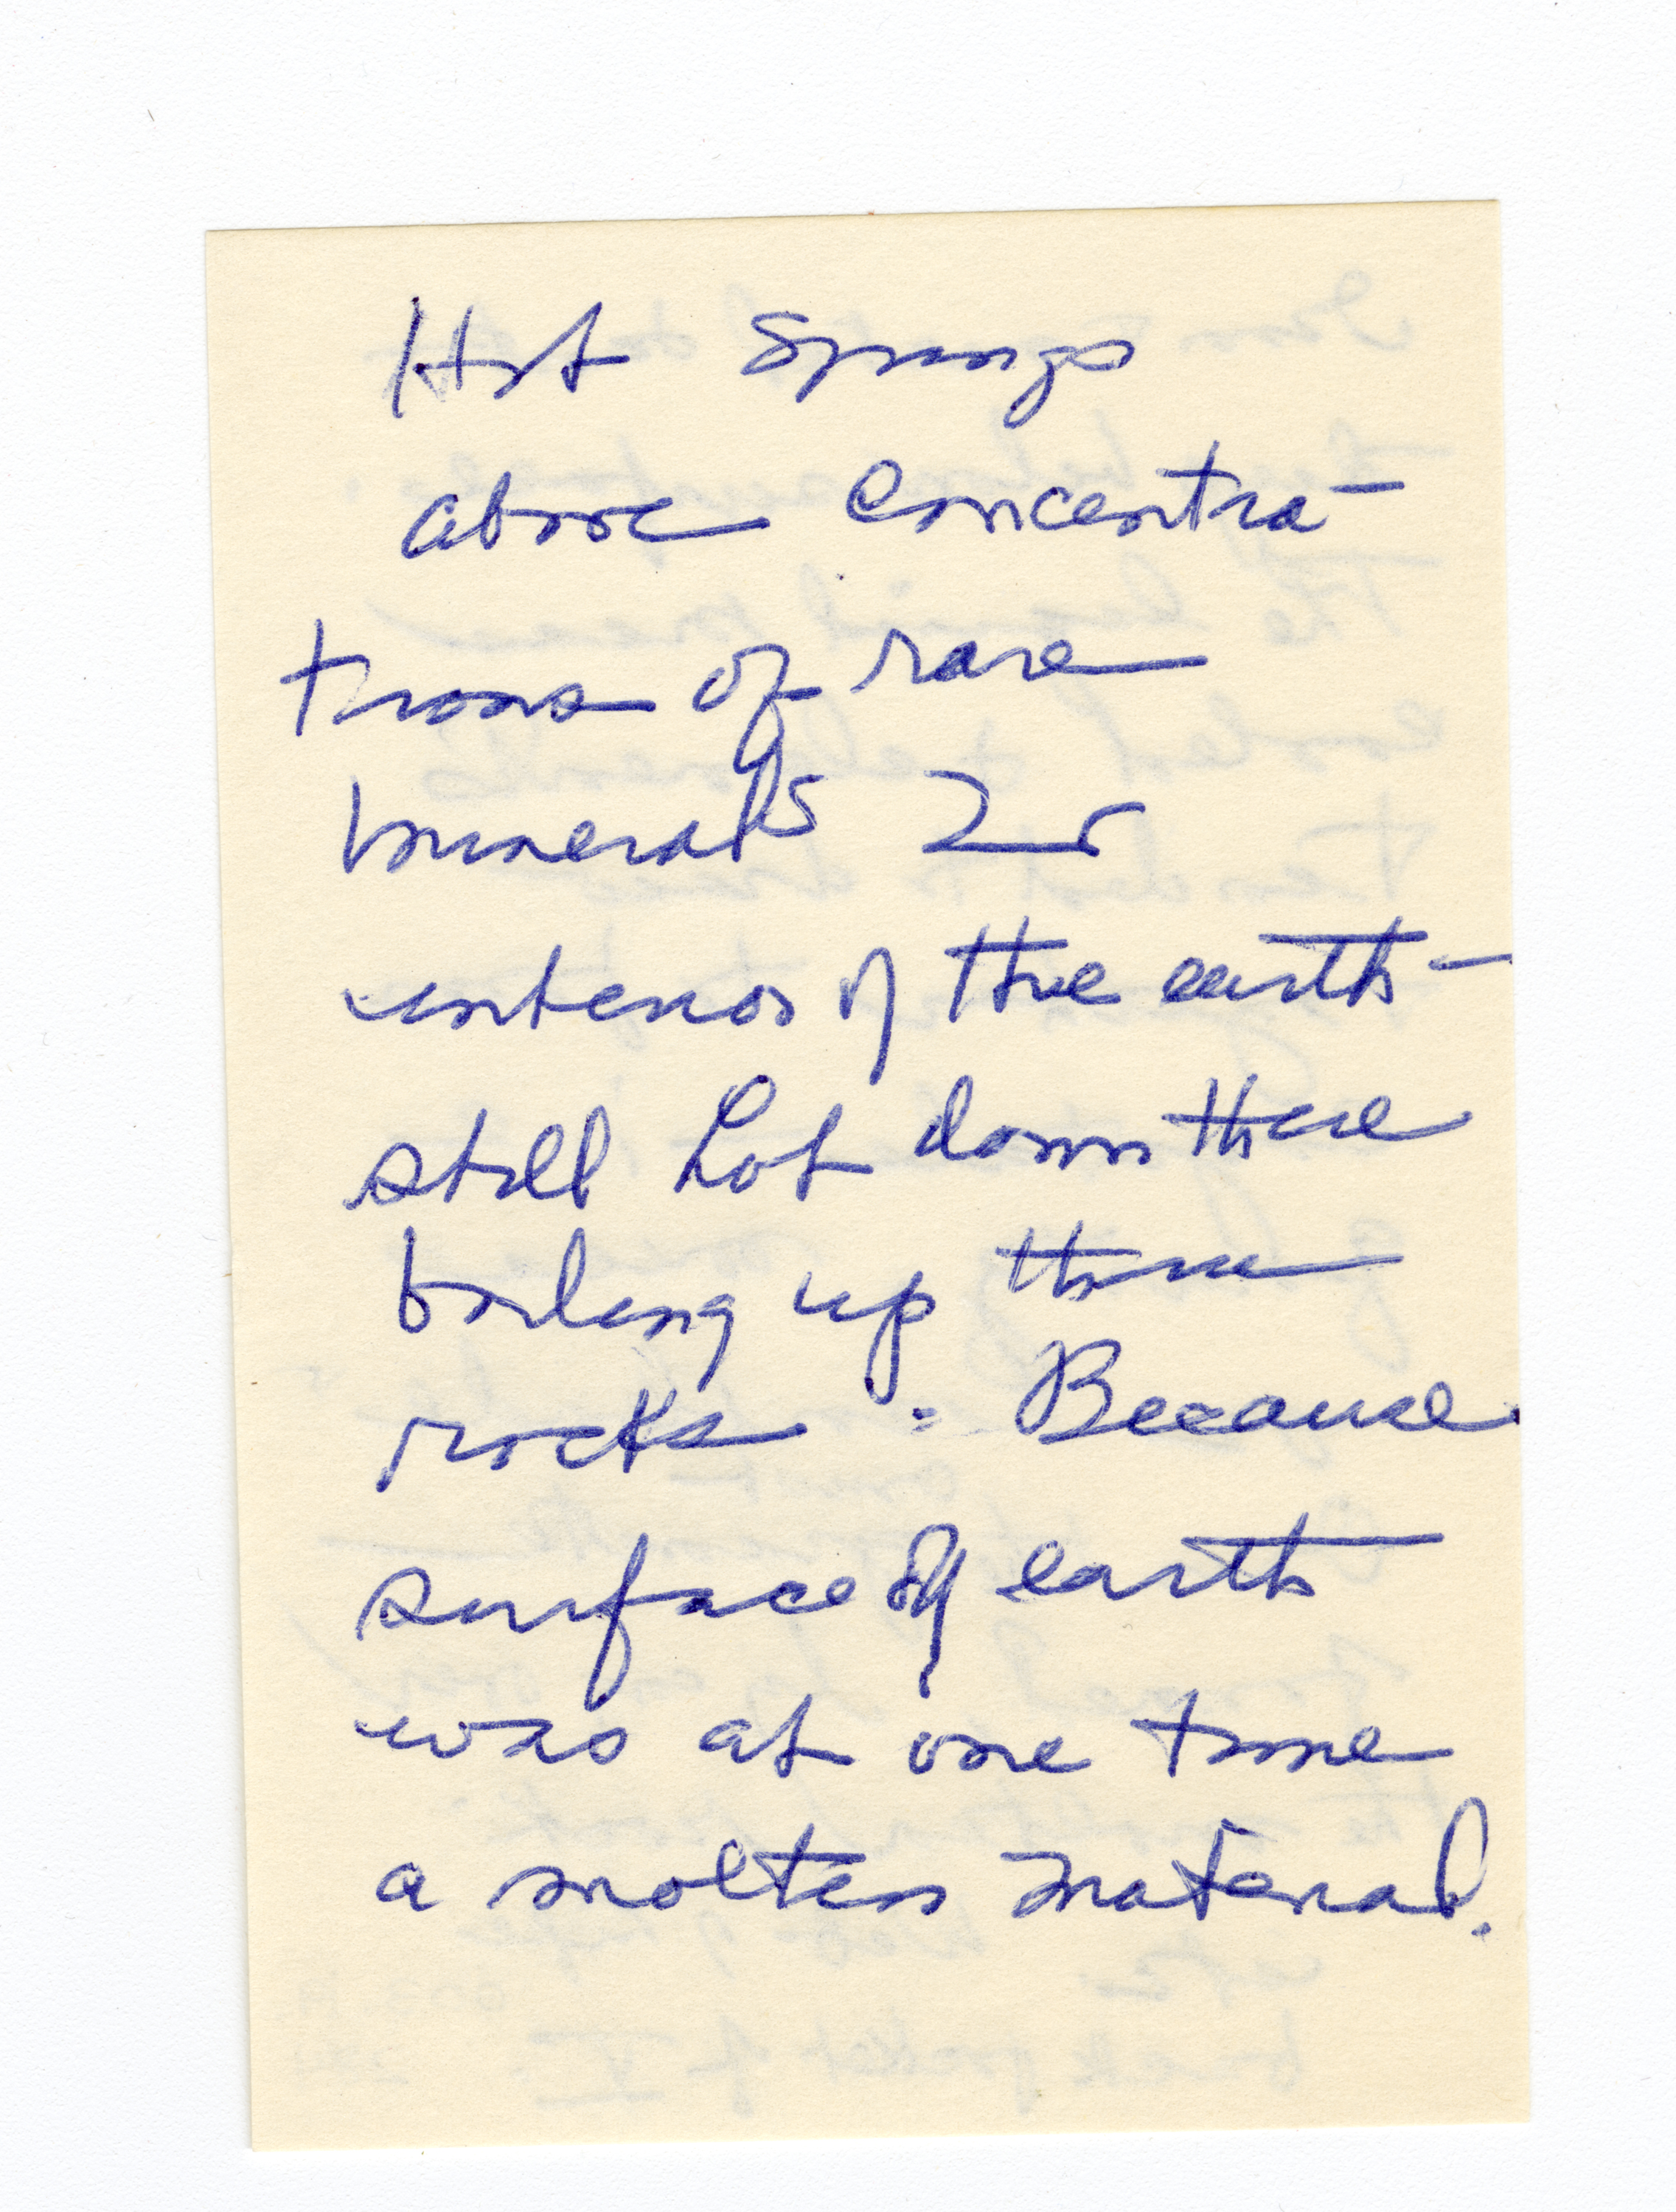 Hot Springs
above concentra-
tions of rare
minerals In
interior of the earth -
still hot down there
boiling up thru
rocks. Because
surface of earth
was at one time
a molten material.